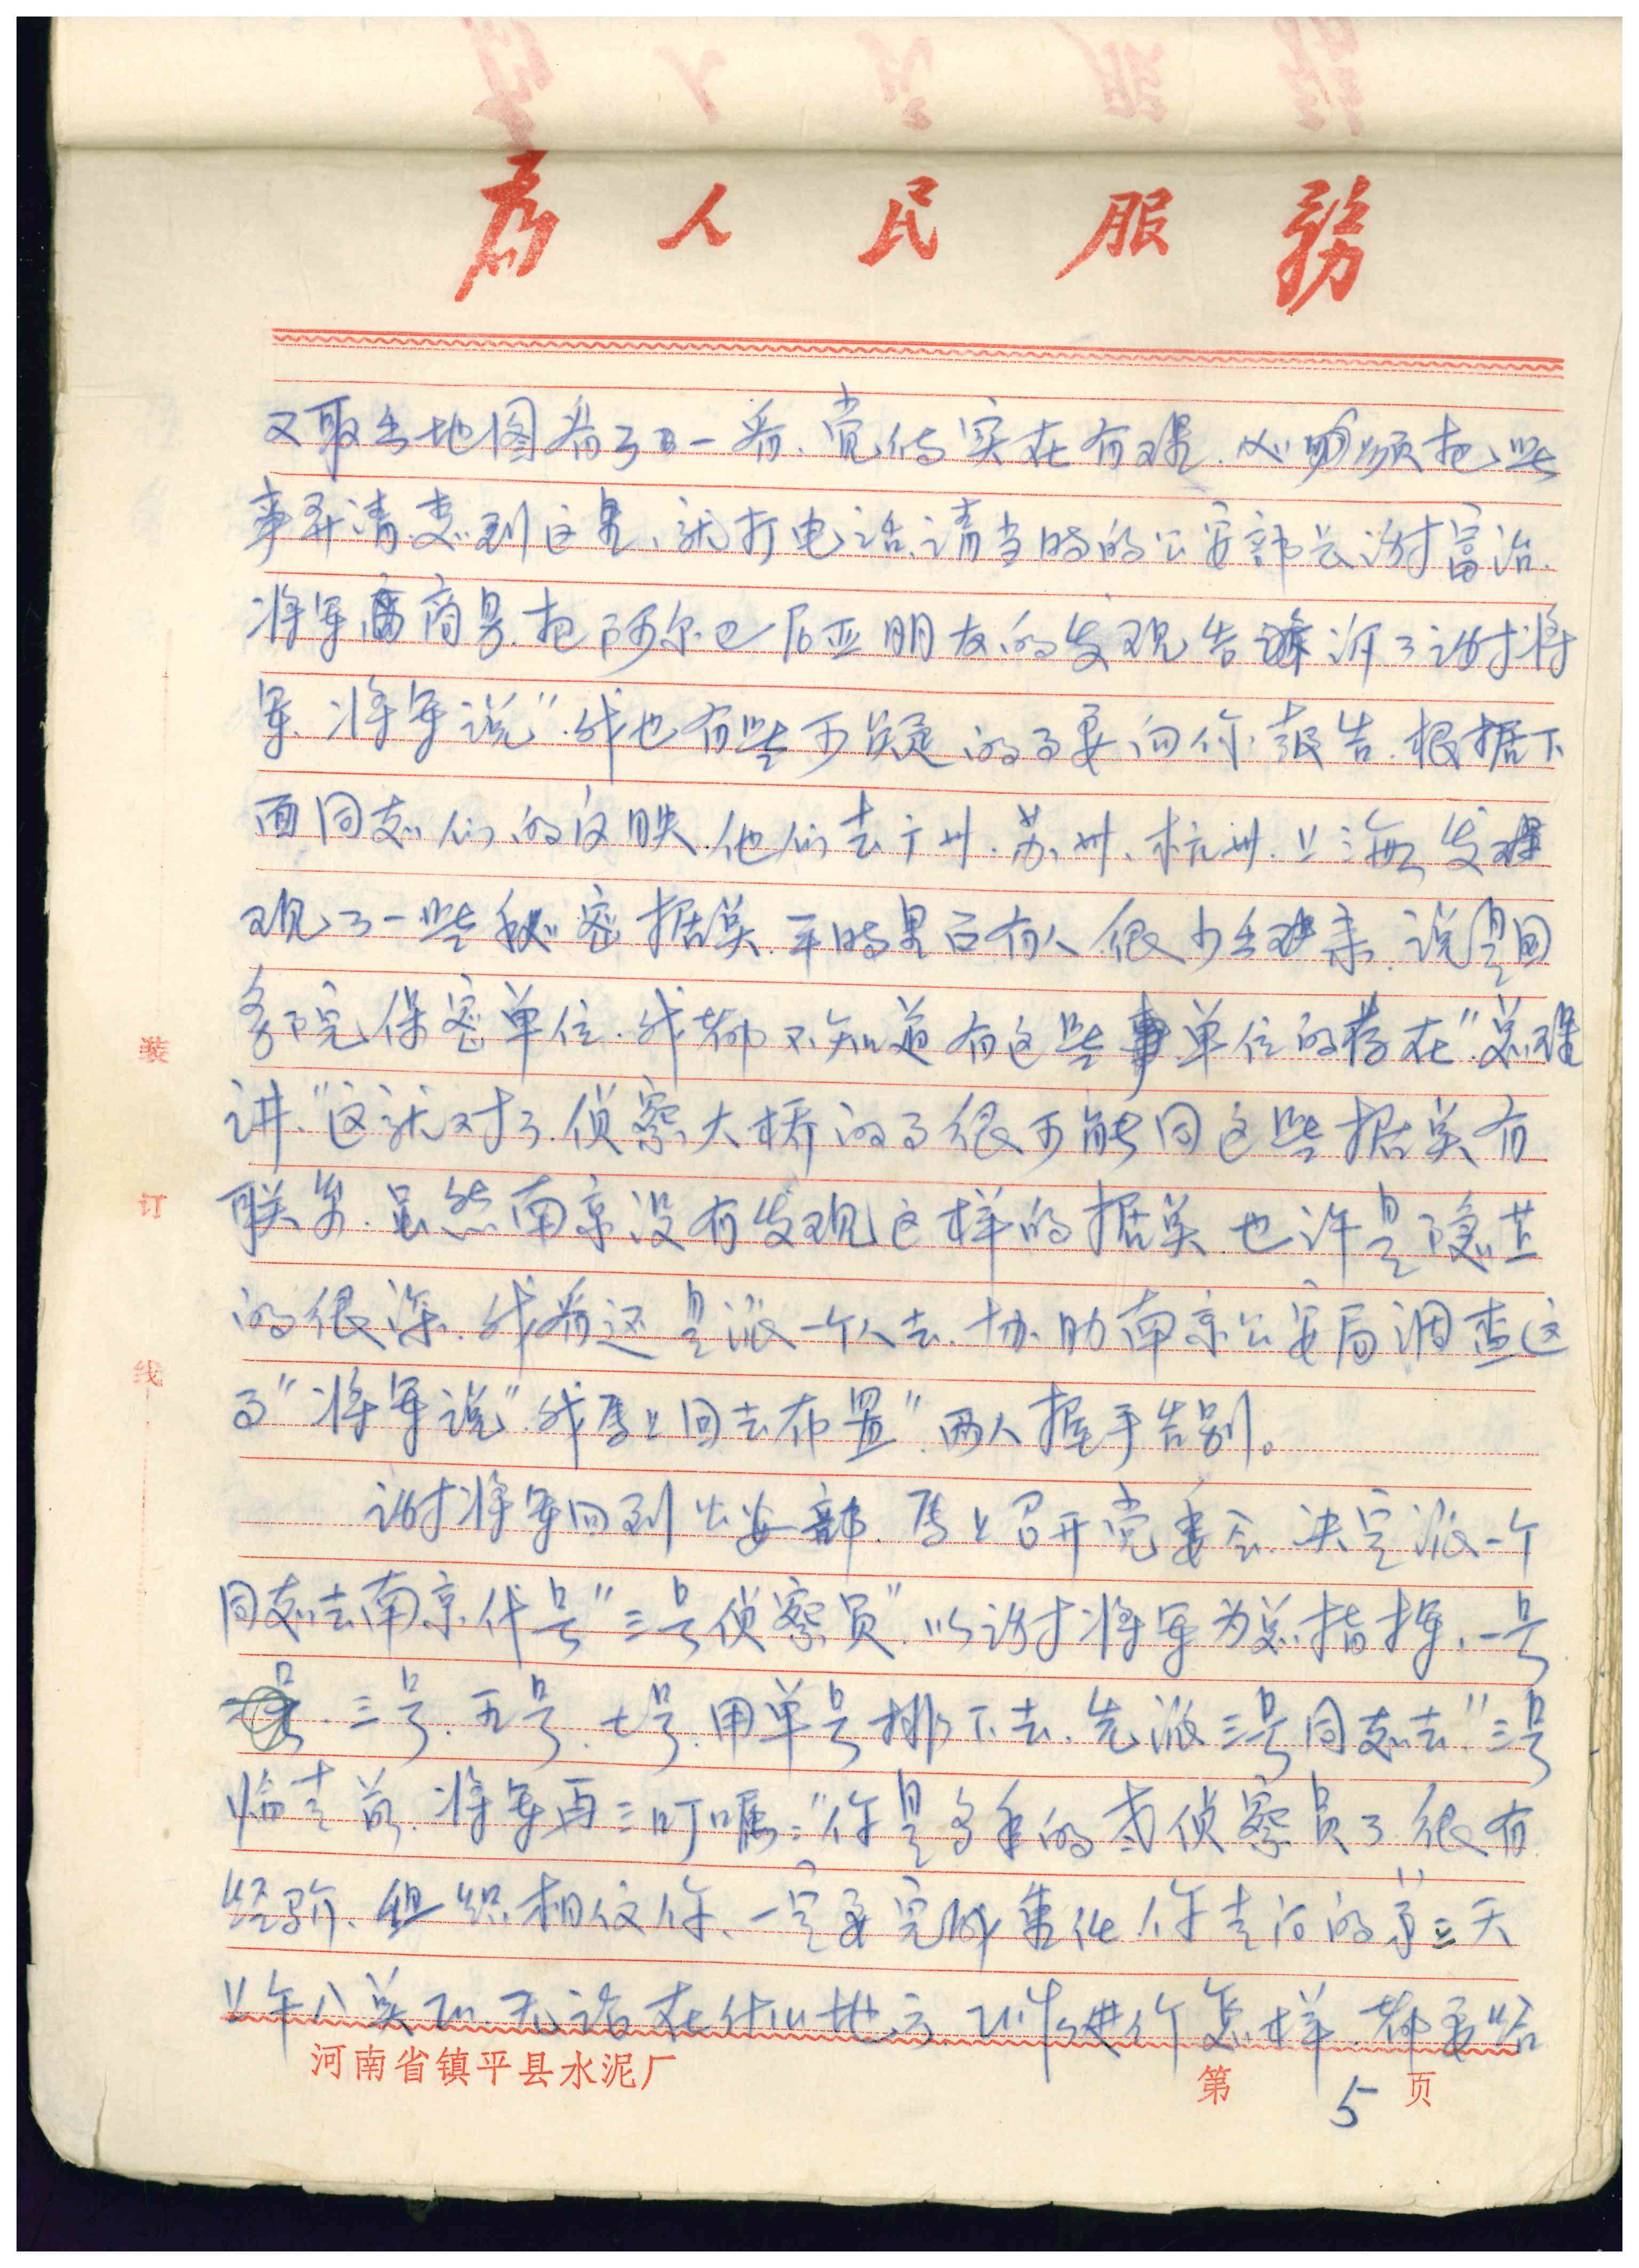 为人民服務
又取出地图看了一看、觉得实在有理、必须把些
事弄清、想到这里、就打电话、请当时的公安部长谢富治
将军商量、把阿尔巴尼亚朋友的发现告诉了谢将
军、将军说"我也有些可疑的事要向你报告、根据下
面同志们的反映、他们去广州、苏州、杭州、上海发
现了一些秘密据点、平时里面有人很少出来、说是国
务院保密单位、我都不知道有这些单位的存在"总理
讲、"这就对了、侦察大桥的事很可能同这些据点有
联系、虽然南京没有发现这样的据点、也许是隐
的很深、我看还是派一个人去、协助南京公安局调查这
事"将军说"我马上回去布置"两人握手告别。
谢将军回到公安部、马上召开党委会、决定派一个
同志去南京、代号"三号侦察员"以谢将军为总指挥、一号
三号、五号、七号、用单号排下去、先派三号同志去"三号
临走前、将军再三叮嘱:"你是多年的老侦察员了很有
经验、组织相信你、一定要完成重任、你走后的第三天
上午八点、无论在什么地方、进行怎样、都要给
装
订
线
河南省镇平县水泥厂
第 5 页